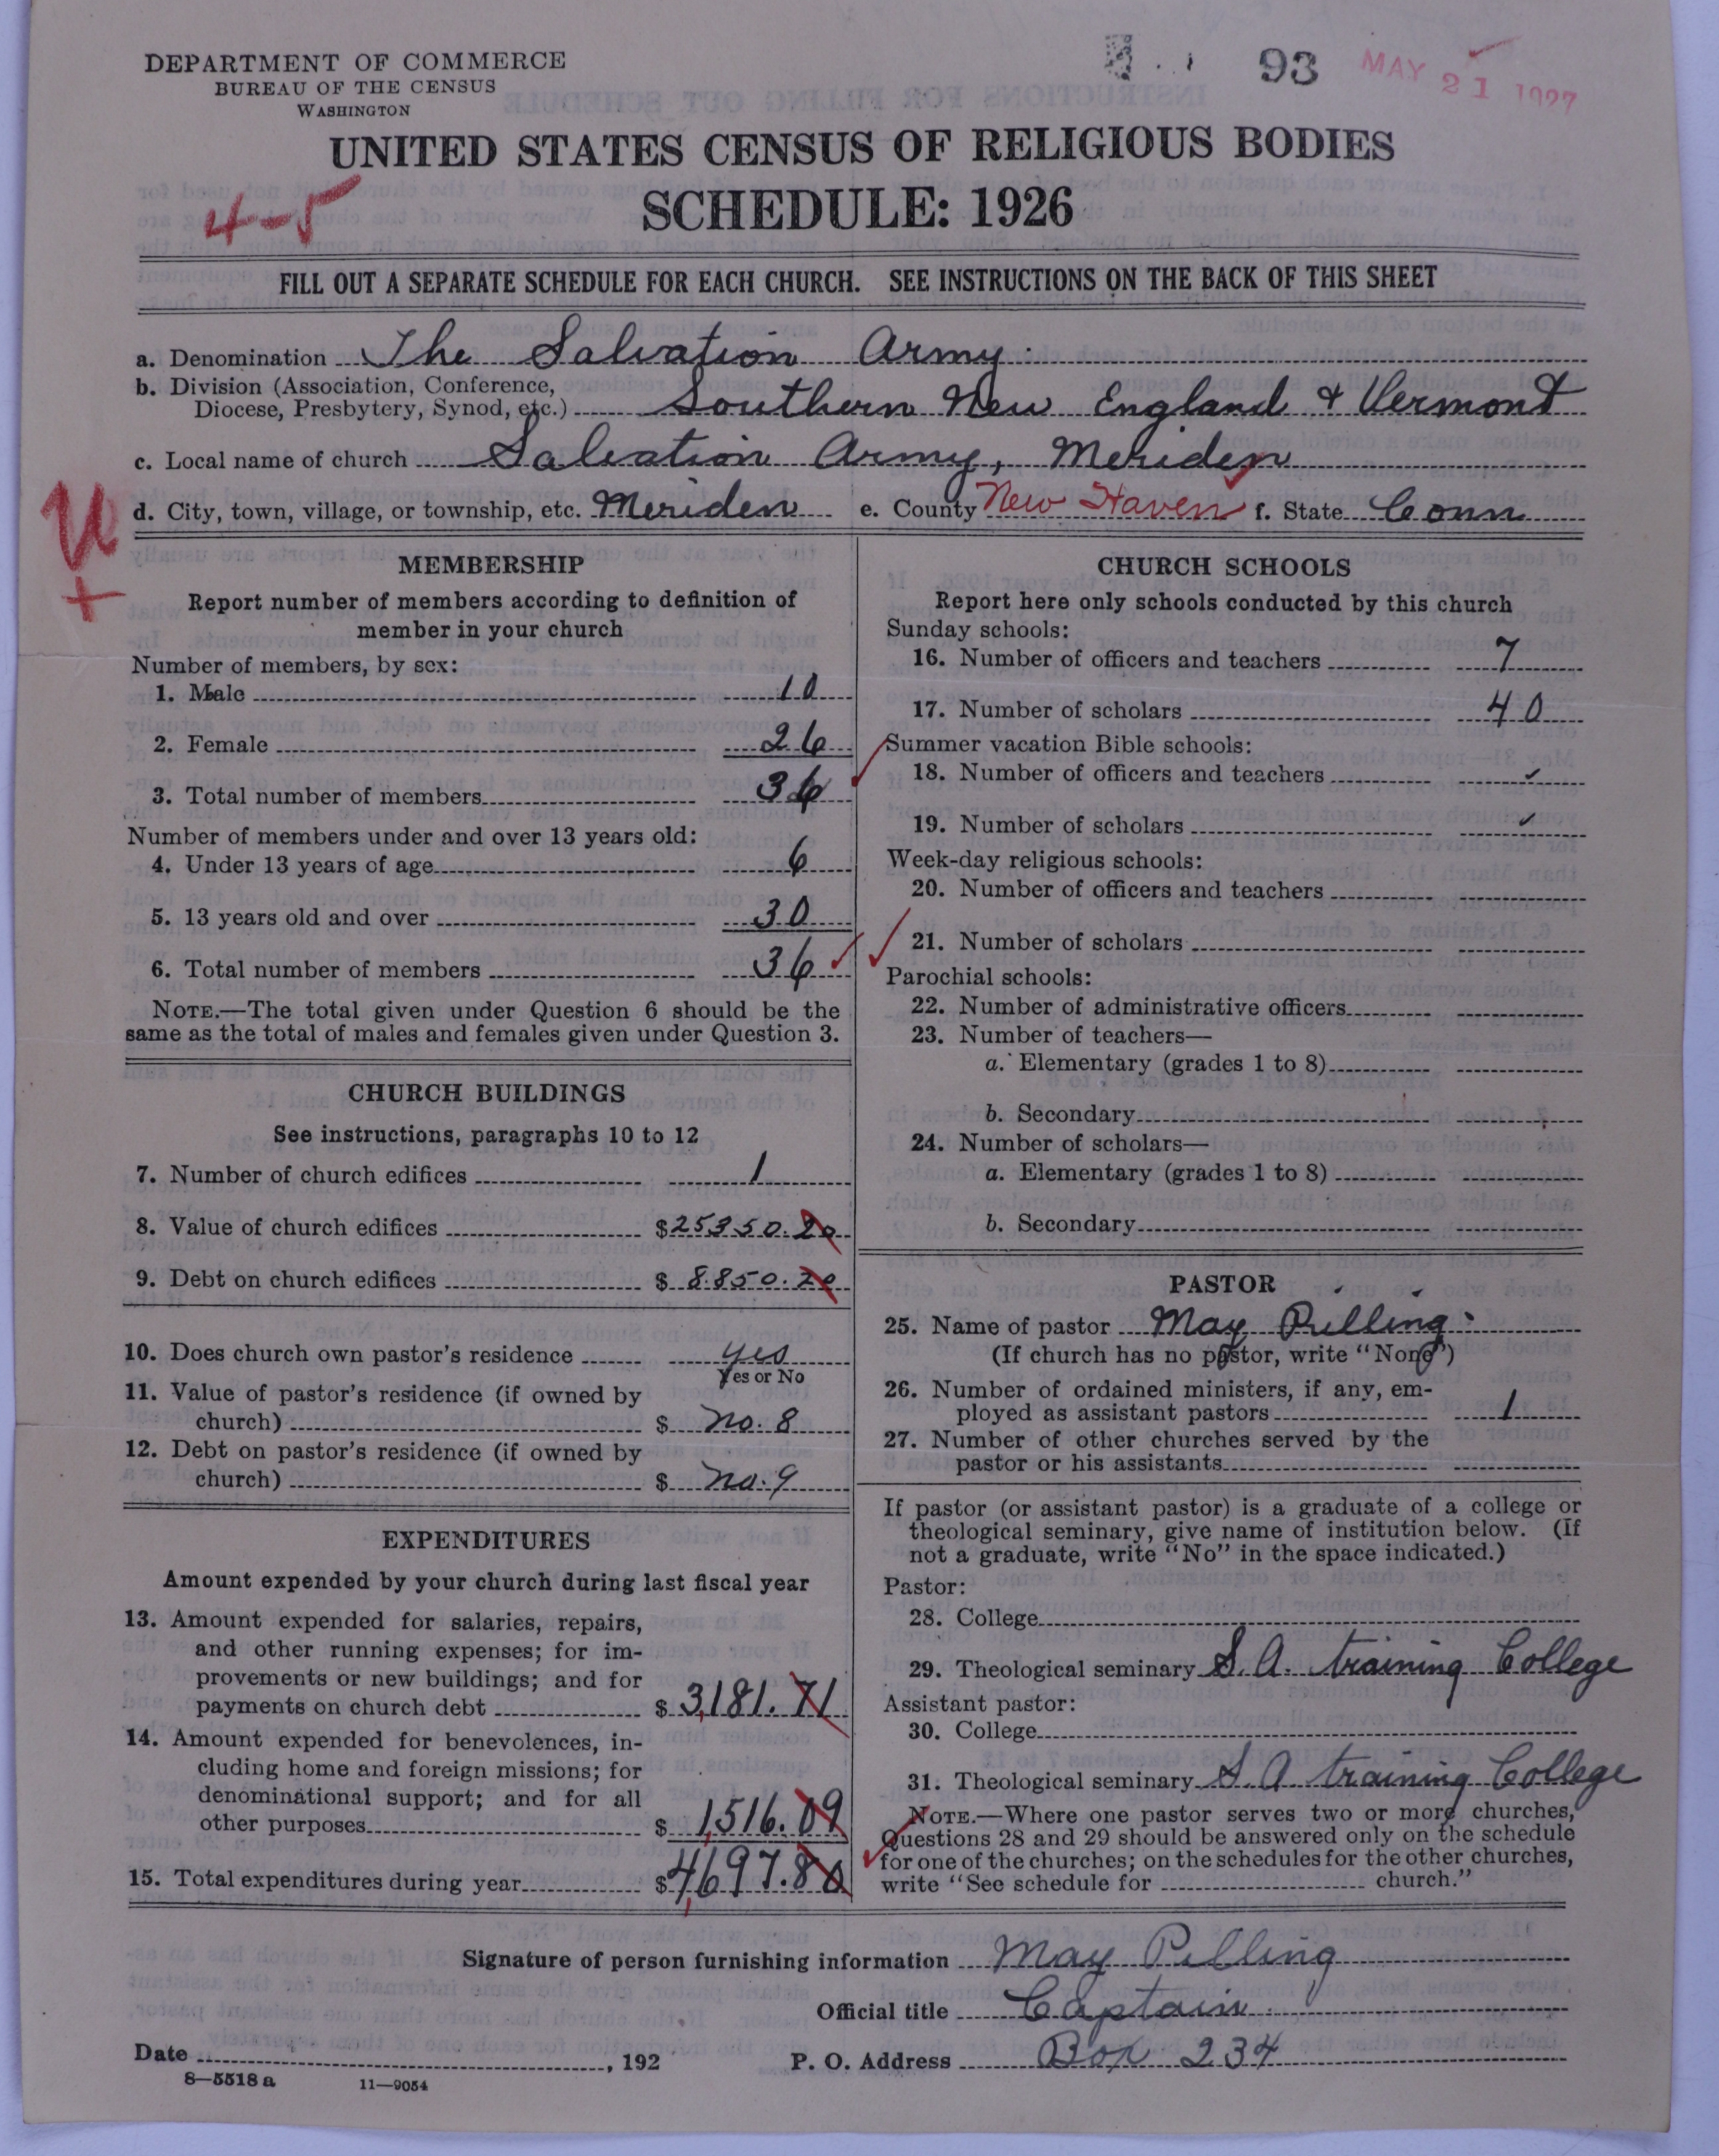 DEPARTMENT OF COMMERCE
BUREAU OF THE CENSUS
WASHINGTON
93 MAY 21 1927
UNITED STATES CENSUS OF RELIGIOUS BODIES
4-5
SCHEDULE: 1926
FILL OUT A SEPARATE SCHEDULE FOR EACH CHURCH. SEE INSTRUCTIONS ON THE BACK OF THIS SHEET
a. Denomination The Salvation Army
b. Division (Association, Conference,
Diocese, Presbytery, Synod, etc.) Southern New England & Vermont
c. Local name of church Salvation Army, Meriden
d. City, town, village, or township, etc. Meriden e. County New Haven f. State Conn
MEMBERSHIP
Report number of members according to definition of
member in your church
Number of members, by sex:
1. Male 10
2. Female 26
3. Total number of members 36
Number of members under and over 13 years old:
4. Under 13 years of age 6
5. 13 years old and over 30
6. Total number of members 36
NOTE.—The total given under Question 6 should be the
same as the total of males and females given under Question 3.
CHURCH BUILDINGS
See instructions, paragraphs 10 to 12
7. Number of church edifices 1
8. Value of church edifices $25350.20
9. Debt on church edifices $ 8850.20
10. Does church own pastor's residence yes
Yes or No
11. Value of pastor's residence (if owned by
church) $ no. 8
12. Debt on pastor's residence (if owned by
church) $ no. 9
EXPENDITURES
Amount expended by your church during last fiscal year
13. Amount expended for salaries, repairs,
and other running expenses; for im-
provements or new buildings; and for
payments on church debt $ 3,181.71
14. Amount expended for benevolences, in-
cluding home and foreign missions; for
denominational support; and for all
other purposes $ 1,516.09
15. Total expenditures during year $4,697.80
CHURCH SCHOOLS
Report here only schools conducted by this church
Sunday schools:
16. Number of officers and teachers 7
17. Number of scholars 40
Summer vacation Bible schools:
18. Number of officers and teachers
19. Number of scholars
Week-day religious schools:
20. Number of officers and teachers
21. Number of scholars
Parochial schools:
22. Number of administrative officers
23. Number of teachers—
a. Elementary (grades 1 to 8)
b. Secondary
24. Number of scholars—
a. Elementary (grades 1 to 8)
b. Secondary
PASTOR
25. Name of pastor May Pilling
(If church has no pastor, write "None")
26. Number of ordained ministers, if any, em-
ployed as assistant pastors 1
27. Number of other churches served by the
pastor or his assistants
If pastor (or assistant pastor) is a graduate of a college or
theological seminary, give name of institution below. (If
not a graduate, write "No" in the space indicated.)
Pastor:
28. College
29. Theological seminary S. A. training College
Assistant pastor:
30. College
31. Theological seminary S A training College
NOTE.—Where one pastor serves two or more churches,
Questions 28 and 29 should be answered only on the schedule
for one of the churches; on the schedules for the other churches,
write "See schedule for church."
Signature of person furnishing information May Pilling
Official title Captain
Date , 192 P. O. Address Box 234
8—5518 a 11—9054